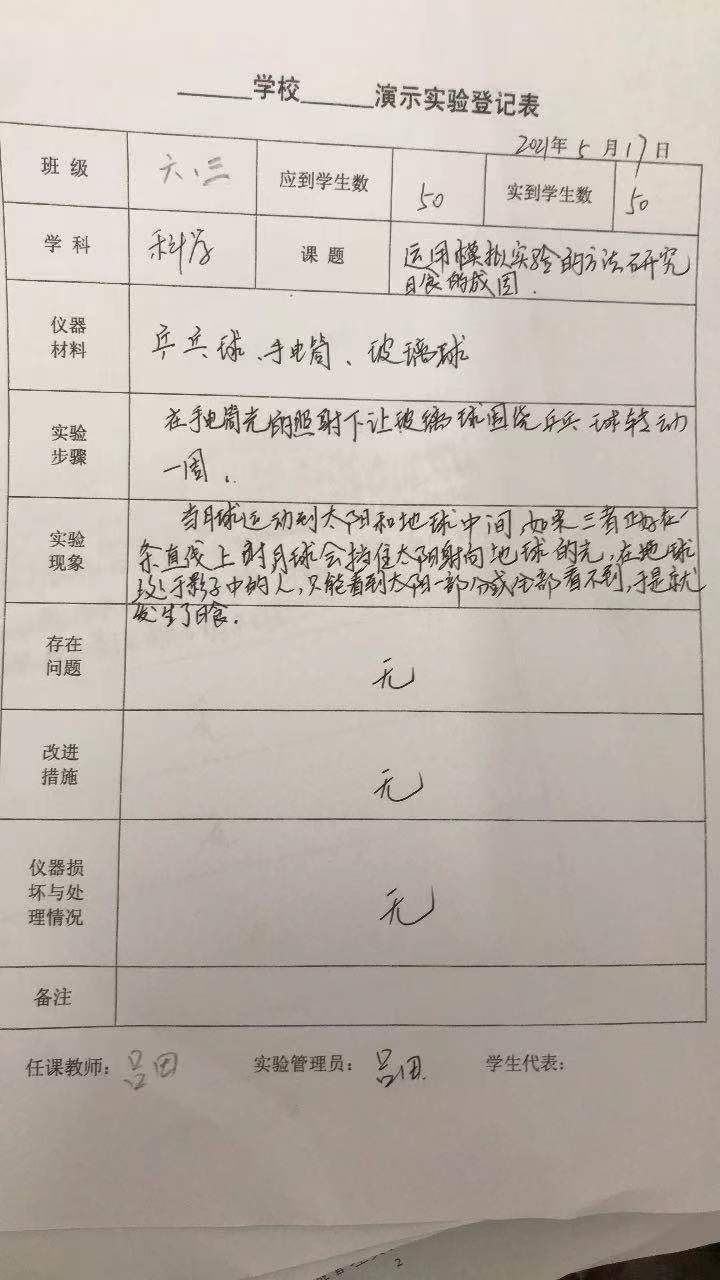 ______学校______演示实验登记表
2021年 5 月 17 日
班 级 六、三 应到学生数 50 实到学生数 50
学 科 科学 课 题 运用模拟实验的方法研究
日食的成因.
仪器
材料
乒乓球、手电筒、玻璃球
实验
步骤
在手电筒光的照射下让玻璃球围绕乒乓球转动
一周.
实验
现象
当月球运动到太阳和地球中间,如果三者正好在一
条直线上时月球会挡住太阳射向地球的光,在地球
处于影子中的人,只能看到太阳一部分或全部看不到,于是就
发生了日食.
存在
问题
无
改进
措施
无
仪器损
坏与处
理情况
无
备注
任课教师: 吕团 实验管理员: 吕团 学生代表:
2